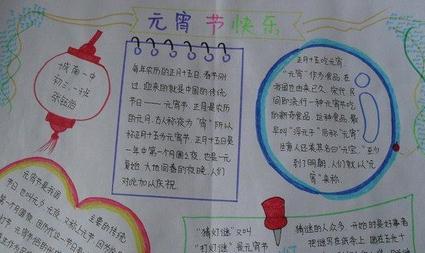 元宵节快乐
城南一中
初三一班
每年农历的正月十五日,春节刚
过,迎来的就是中国的传统
节日——元宵节。正月是农历
的元月,古人称夜为"宵",所以
称正月十五为元宵节。正月十五日是
一年中第一个月圆之夜,也是一元
复始,大地回春的夜晚,人们
对此加以庆祝。
正月十五吃元宵
"元宵"作为食品,在
我国也由来已久。宋代,民
间即流行一种元宵节吃
的新奇食品。这种食品,最
早叫"浮元子"后称"元宵",
生意人还美其名曰"元宝"。
到了明朝,人们就以"元
宵"来称
元宵节是我国
主要的传统
节日,也叫元夕、元夜,又称上元节,因为
"猜灯谜"又叫
"打灯谜"是元宵节
猜谜的人众多。开始时是好事者
把谜写在纸条上,贴在五光十